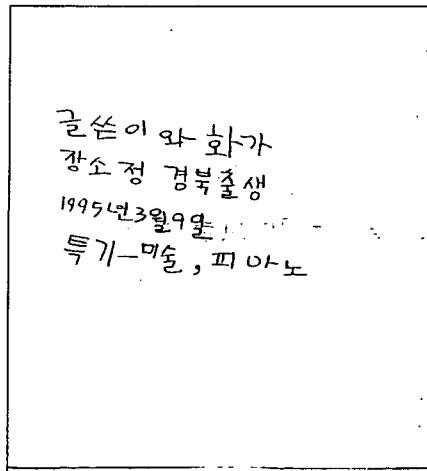 글쓴이와 화가
장소정 경북출생
1995년3월9일
특기-미술, 피아노